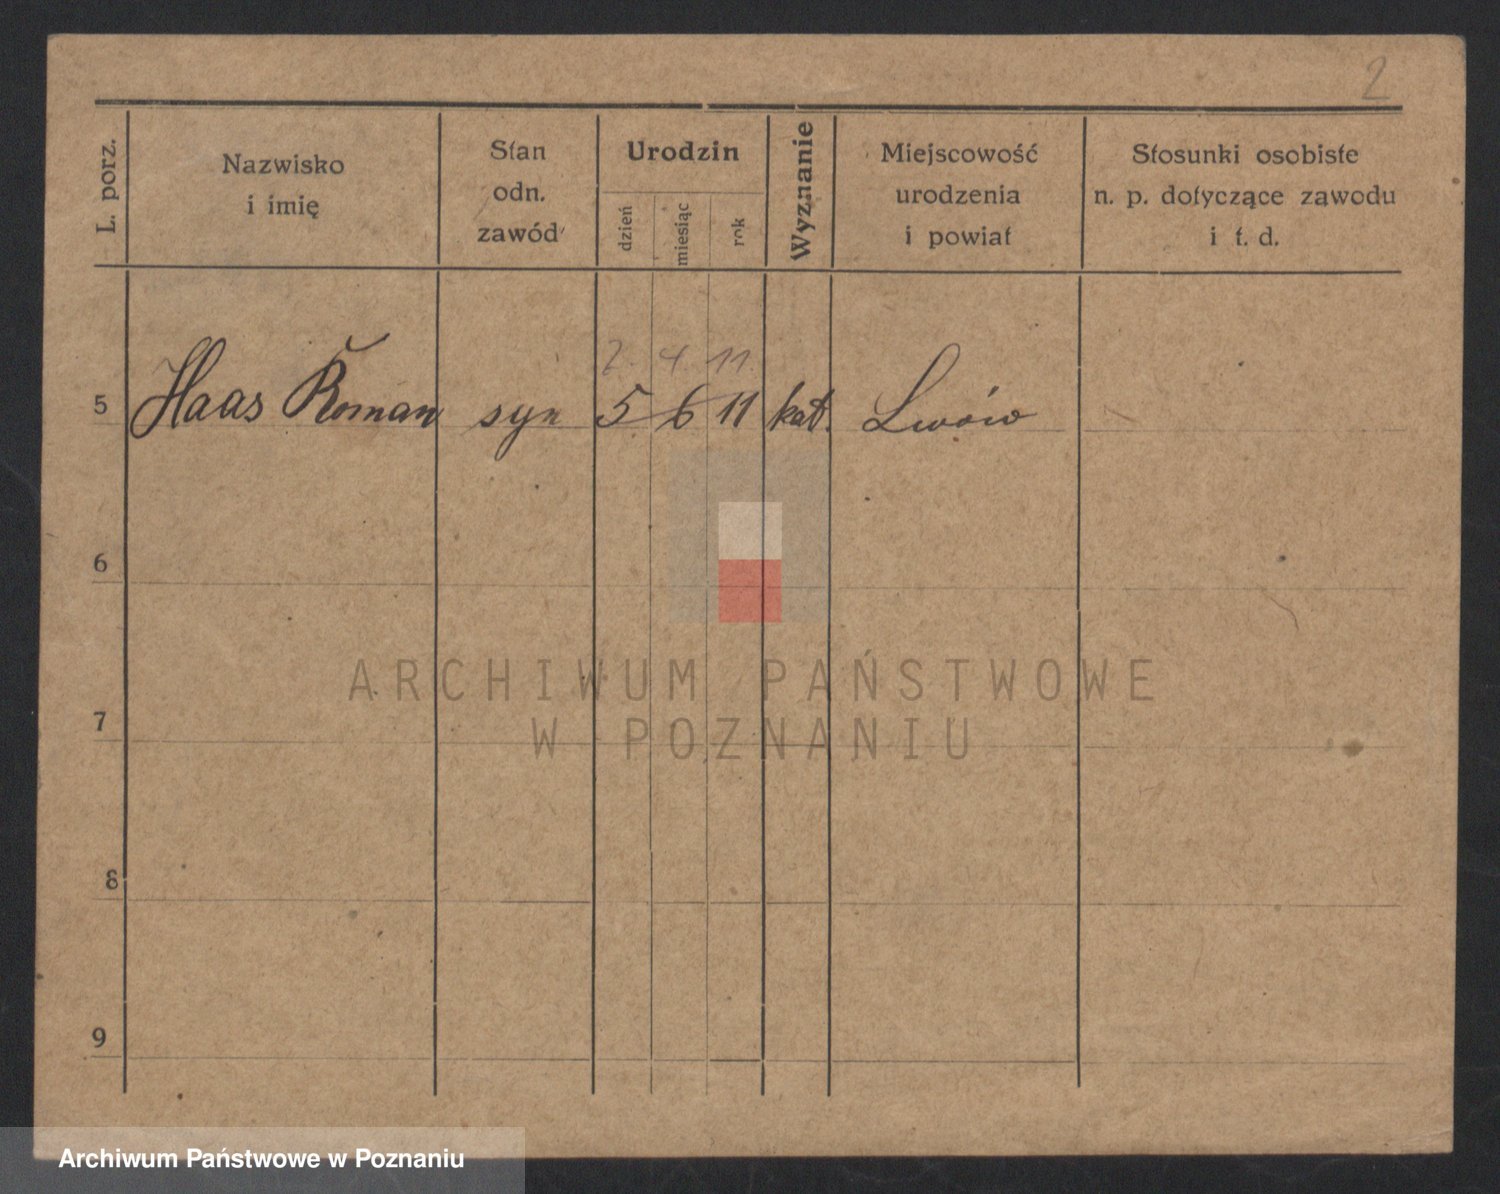 2
L. porz.
Nazwisko
i imię
Stan
odn.
zawód
Urodzin
dzień
miesiąc
rok
Wyznanie
Miejscowość
urodzenia
i powiat
Stosunki osobiste
n. p. dotyczące zawodu
i t. d.
2. 4. 11.
5 Haas Roman syn 5 6 11 kat. Lwów
6
7
8
9
ARCHIWUM PAŃSTWOWE
W POZNANIU
Archiwum Państwowe w Poznaniu